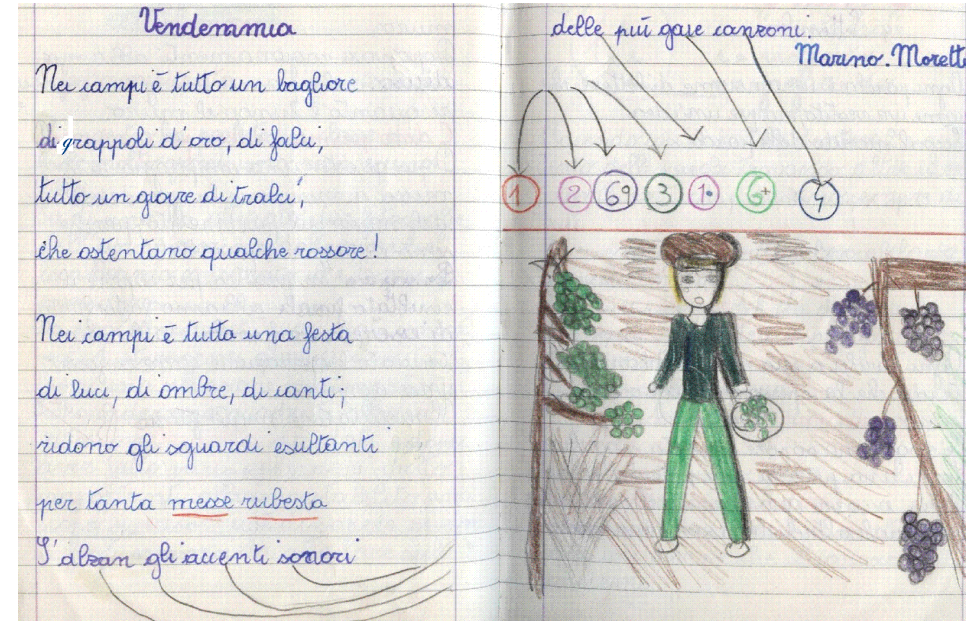 Vendemmia
Nei campi è tutto un bagliore
di grappoli d'oro, di falci,
tutto un giare di tralci,
che ostentano qualche rossore!
Nei campi è tutta una festa
di luci, di ombre, di canti;
ridono gli sguardi esultanti
per tanta messe rubesta
S'alzan gli accenti sonori
delle più gaie canzoni.
Marino Moretti
1 2 69 3 1 6+ 4